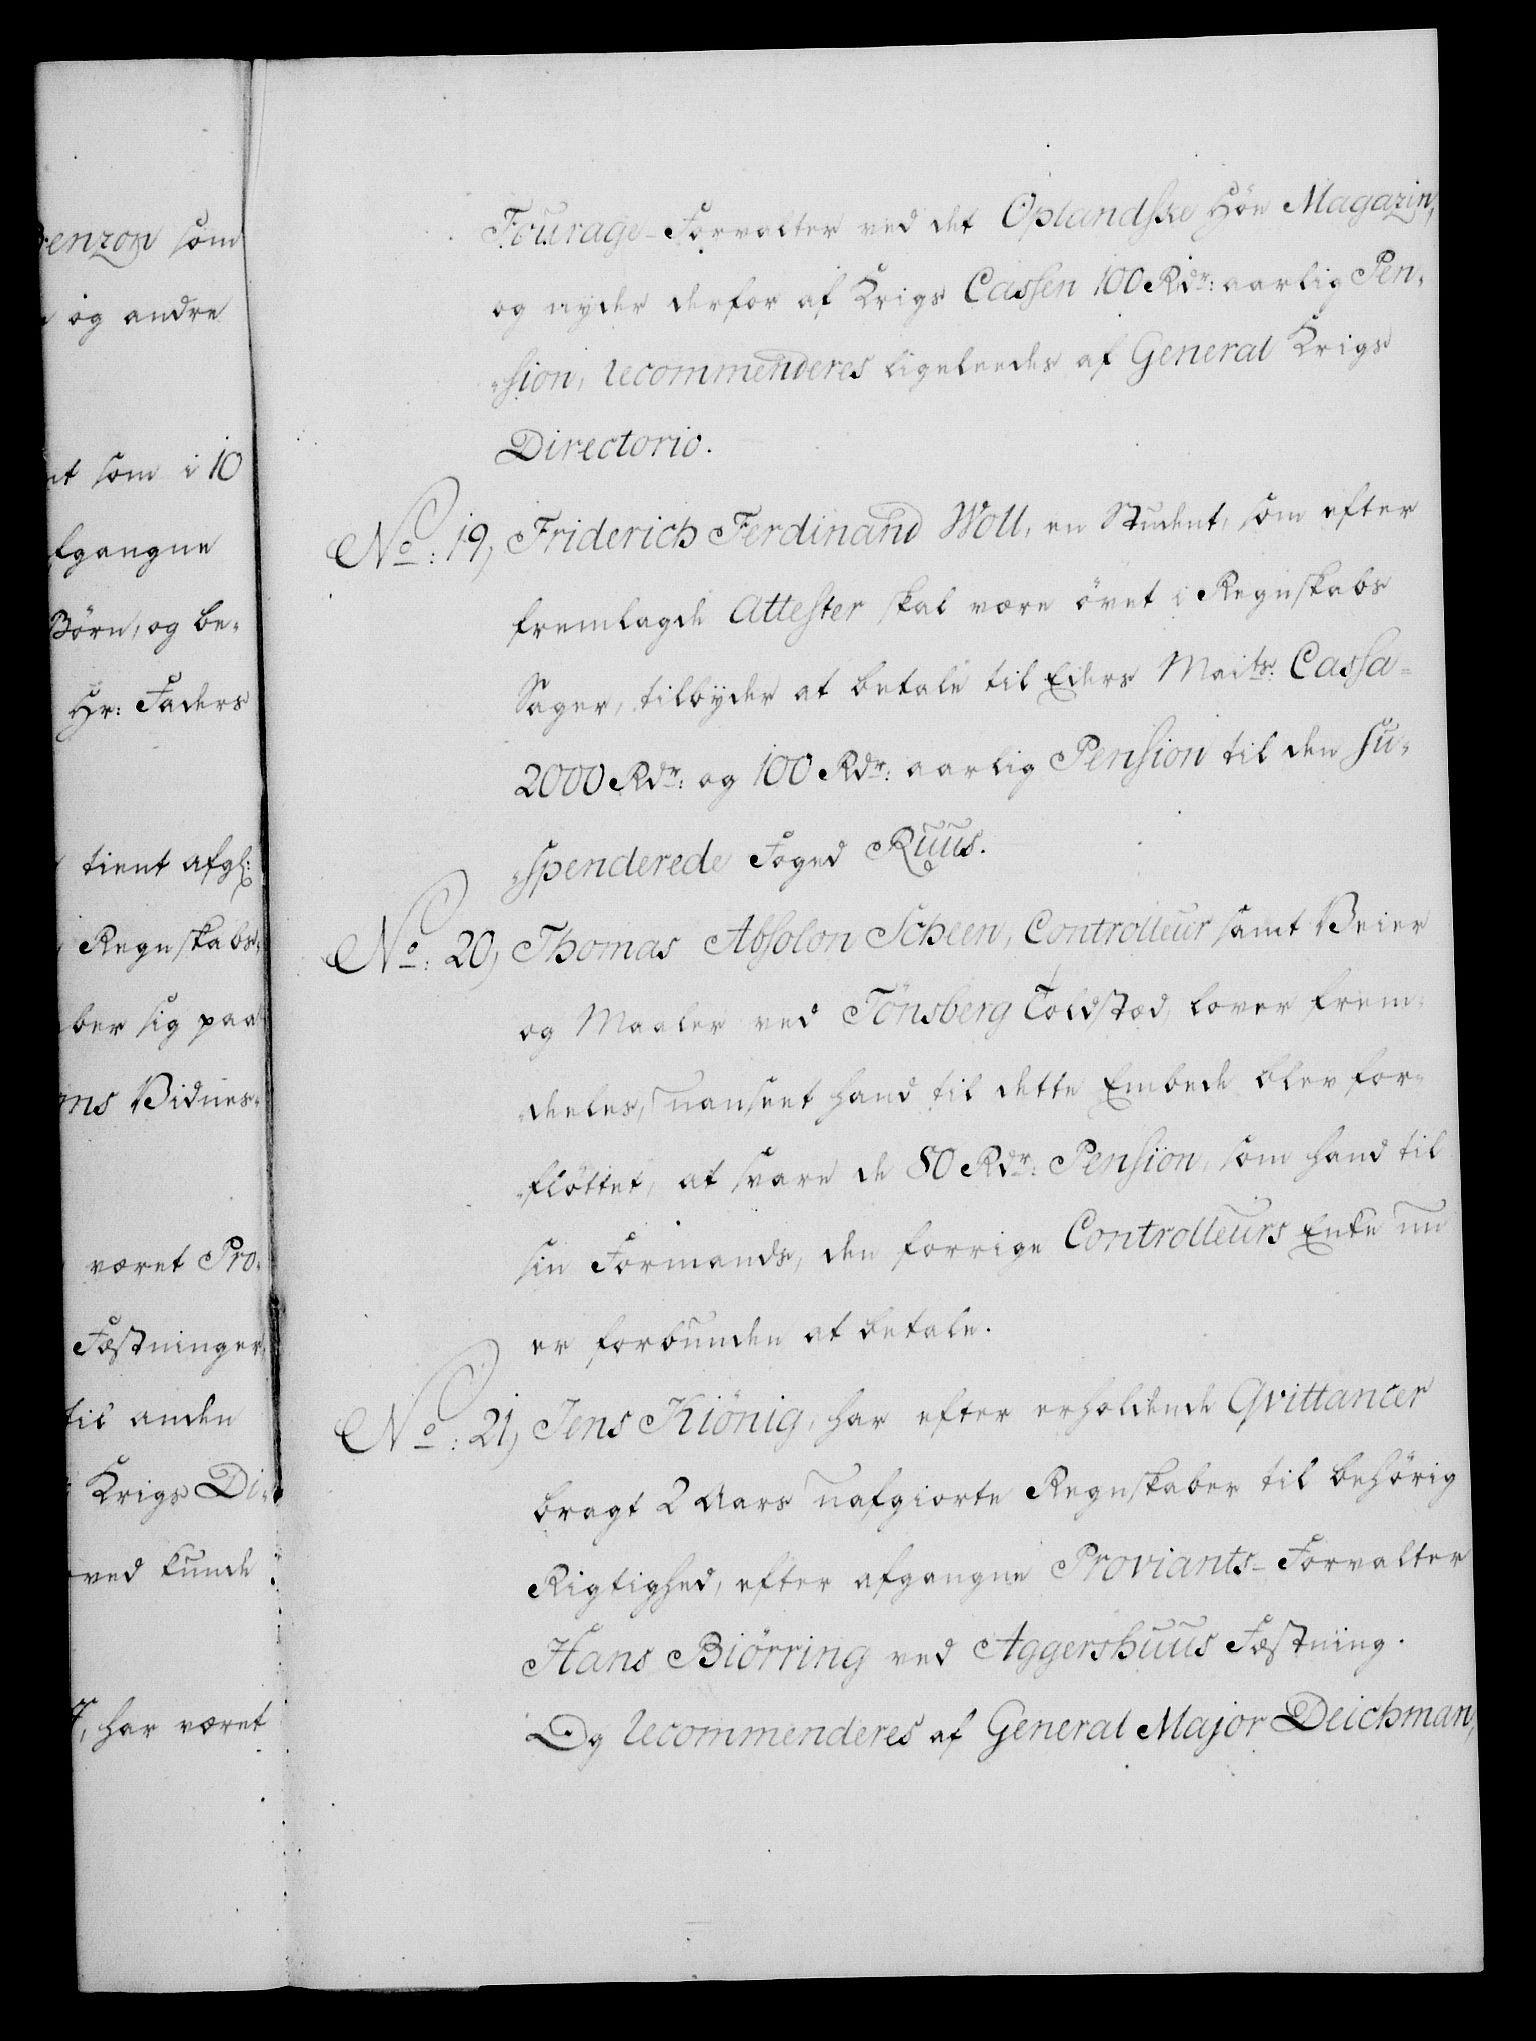 renzon som
og andre
nt som i 10
fgangne
Börn, og be-
Hr: Faders
tient afgl:
Regnskabs-
ber sig paa
ms Vidnes-
været Pro-
Fæstninger
til anden
Krigs Di-
ved kunde
, har været
Fourage-Forvalter ved det Oplandske Höe Magazin,
og nyder derfor af Krigs Cassen 100 Rdr: aarlig Pen-
-sion, recommenderes ligeleedes af General Krigs
Directorio.
No: 19, Friderich Ferdinand Woll, en Student, som efter
fremlagde Attester skal være övet i Regnskabs
Sager, tilbyder at betale til Eders Maits: Cassa-
2000 Rdr: og 100 Rdr: aarlig Pension til den su-
-spenderede Foged Ruus.
No: 20, Thomas Absolon Scheen, Controlleur samt Veier
og Maaler ved Tönsberg Toldsted, lover frem-
-deeles, uanseet hand til dette Embede blev for-
-flöttet, at svare de 80 Rdr: Pension, som hand til
sin Formands, den forrige Controlleurs Enke nu
er forbunden at betale.
No: 21, Jens Kiönig, har efter erholdende Qvittancer
bragt 2 Aars uafgiorte Regnskaber til behörig
Rigtighed, efter afgangne Proviants-Forvalter
Hans Biörring ved Aggershuus Fæstning.
Og recommenderes af General Major Deichman,